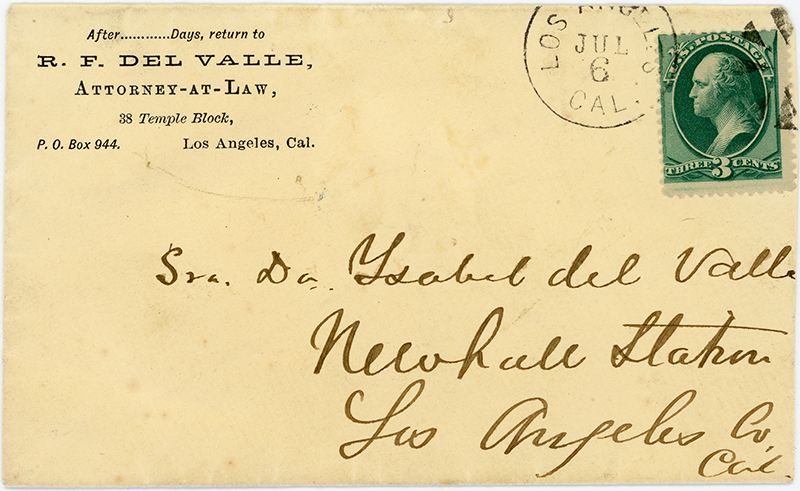 After............Days, return to
R. F. DEL VALLE,
ATTORNEY-AT-LAW,
38 Temple Block,
P. O. Box 944. Los Angeles, Cal.
LOS ANGELES
JUL
6
CAL.
U.S. POSTAGE
THREE 3 CENTS
Sra. Da. Ysabel del Valle
Newhall Station
Los Angeles Co.
Cal.